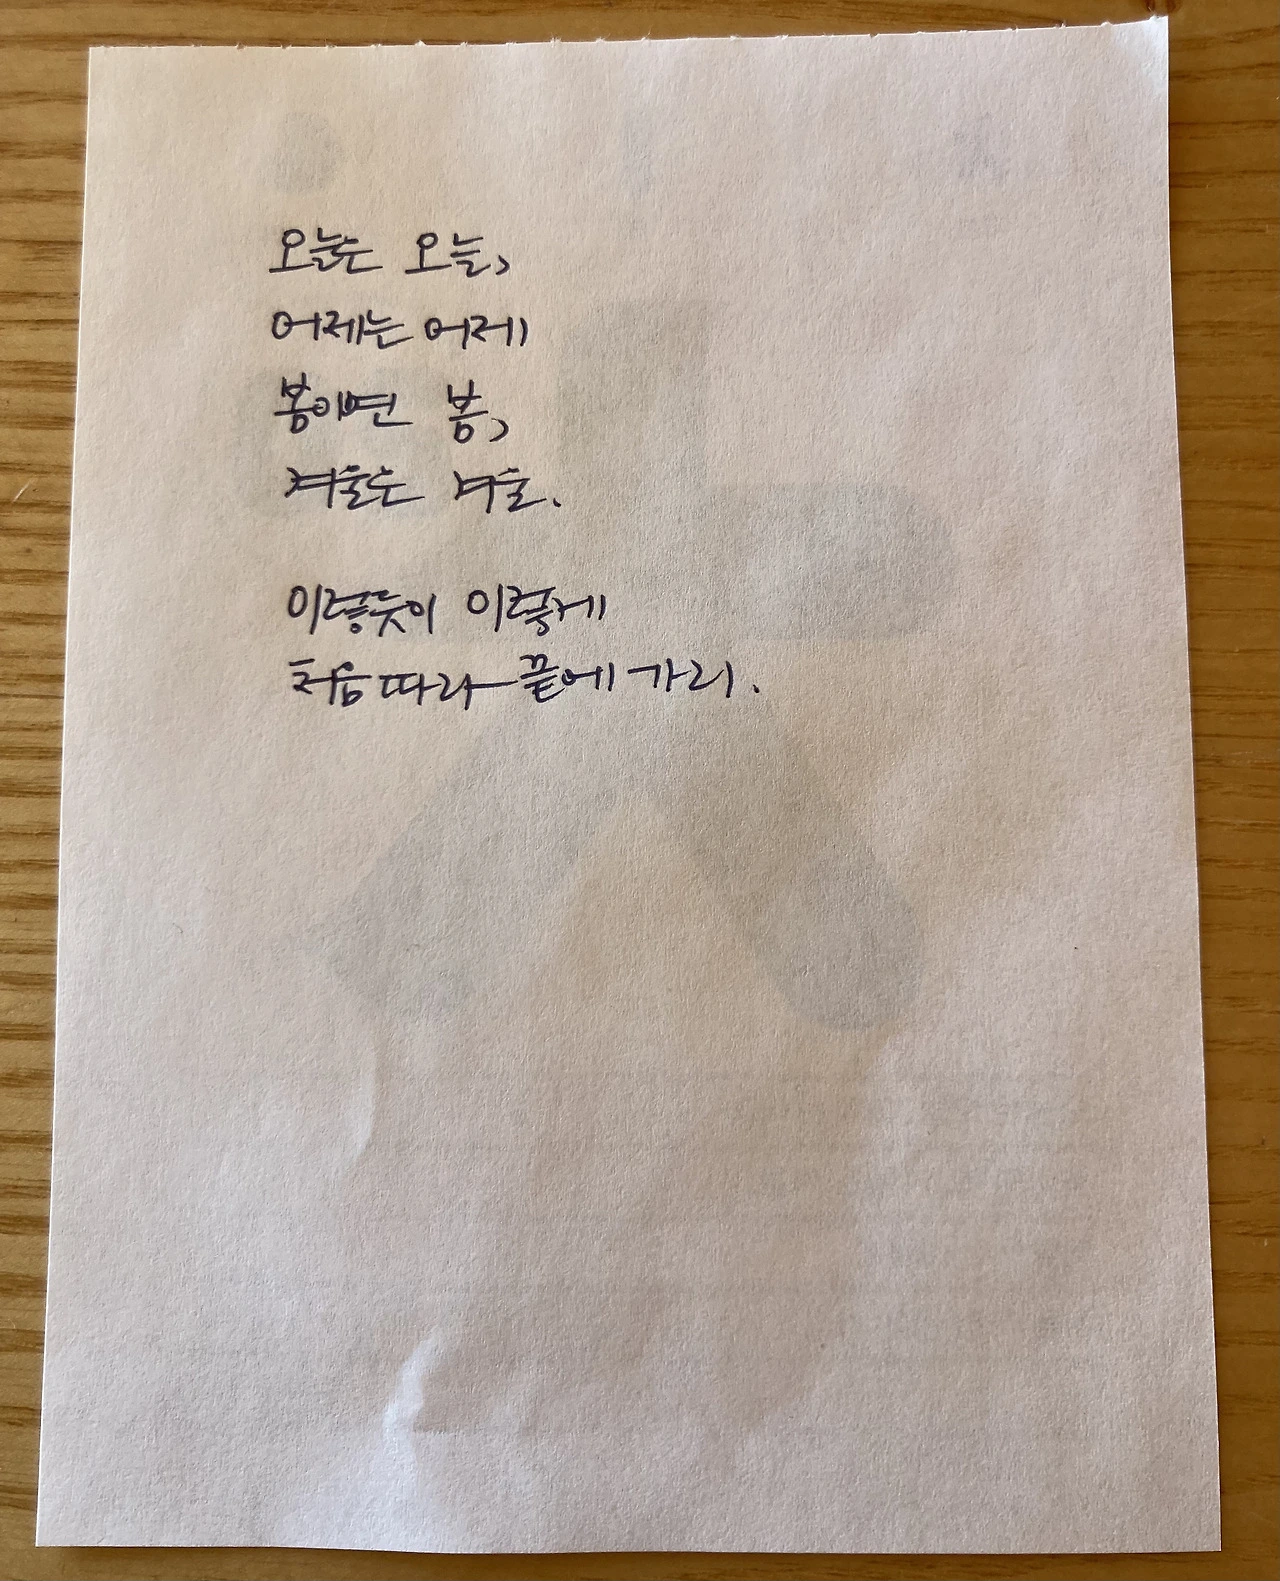 오늘은 오늘,
어제는 어제
봄이면 봄,
겨울은 겨울.
이렇듯이 이렇게
처음 따라 끝에 가리.